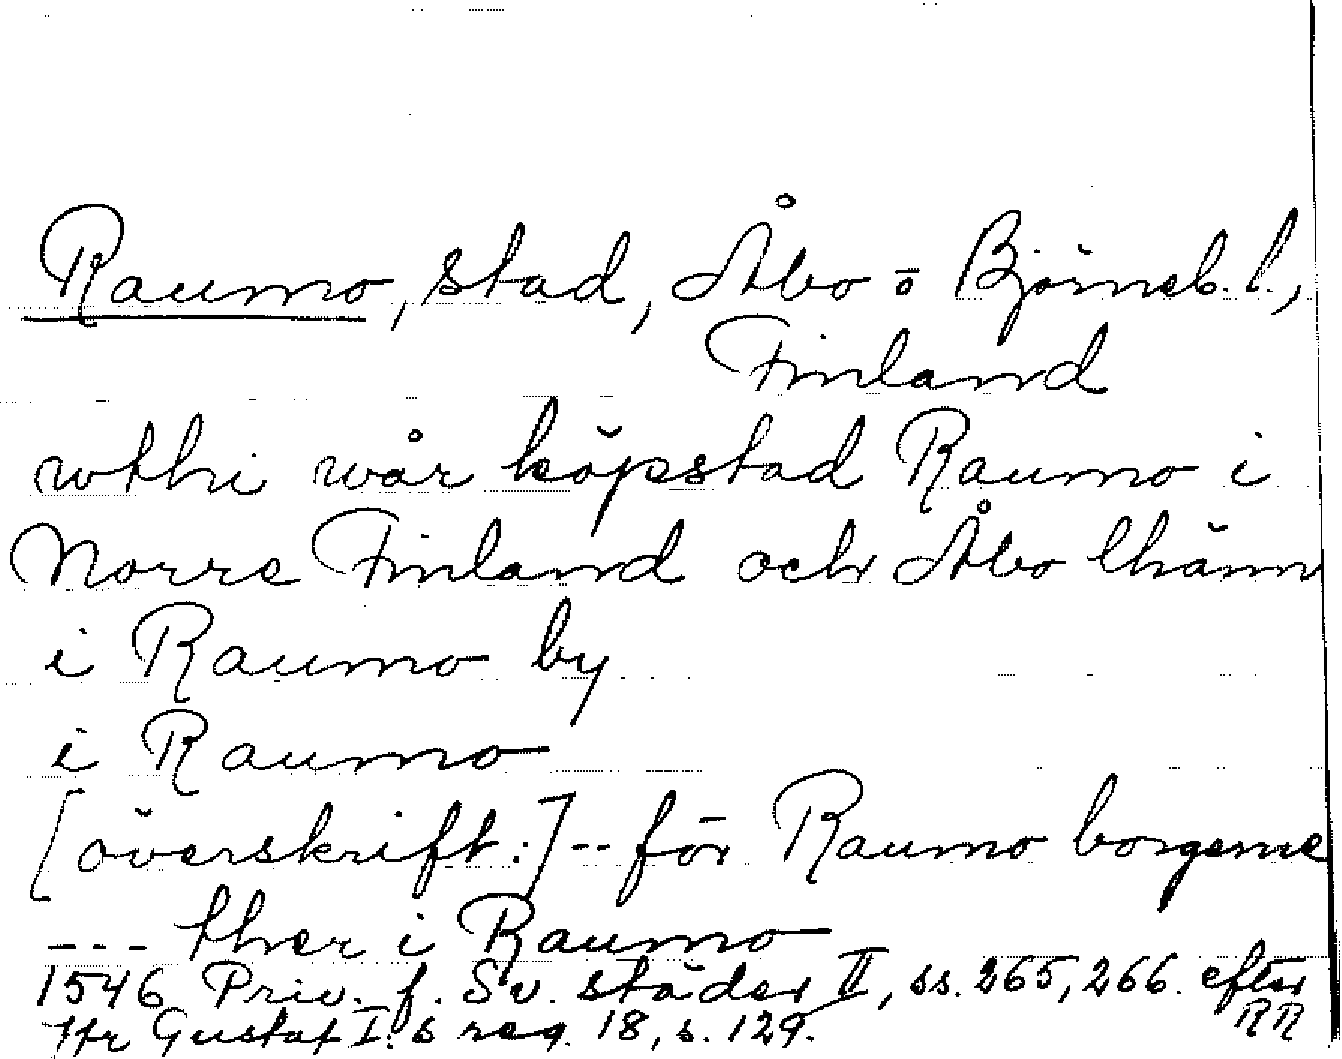 Raumo, stad, Åbo o Björneb. l.,
Finland
wthi wår köpstad Raumo i
Norre Finland och Åbo lhänn
i Raumo by
i Raumo
[överskrift:] -- för Raumo borgerne
--- ther i Raumo
1546 Priv. f. Sv. städer II, ss. 265, 266. efter RR
Jfr Gustaf I:s reg. 18, s. 129.